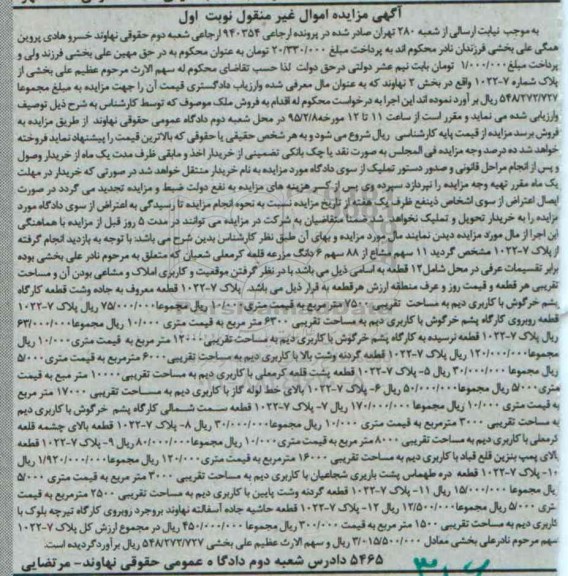 آگهی مزایده اموال غیر منقول نوبت اول
به موجب نیابت ارسالی از شعبه ۲۸۰ تهران صادر شده در پرونده ارجاعی ۹۴۰۳۵۴ ارجاعی شعبه دوم حقوقی نهاوند خسرو هادی پروین
همگی علی بخشی فرزندان نادر محکوم اند به پرداخت مبلغ ۲۰/۳۳۰/۰۰۰ تومان به عنوان محکوم به در حق مهین علی بخشی فرزند ولی و
پرداخت مبلغ ۱/۰۰۰/۰۰۰ تومان بابت نیم عشر دولتی درحق دولت لذا حسب تقاضای محکوم له سهم الارث مرحوم عظیم علی بخشی از
پلاک شماره ۷-۱۰۲۲ واقع در بخش ۲ نهاوند که به عنوان مال معرفی شده وارزیاب دادگستری قیمت آن را جهت مزایده به مبلغ مجموعا
۵۴۸/۲۷۲/۷۲۷ ریال بر آورد نموده اند این اجرا به درخواست محکوم له اقدام به فروش ملک موصوف که توسط کارشناس به شرح ذیل توصیف
وارزیابی شده می نماید و مقرر است از ساعت ۱۱ تا ۱۲ مورخه ۹۵/۲/۸ در محل شعبه دوم دادگاه عمومی حقوقی نهاوند از طریق مزایده به
فروش برسد مزایده از قیمت پایه کارشناسی ریال شروع می شود و به هر شخص حقیقی یا حقوقی که بالاترین قیمت را پیشنهاد نماید فروخته
خواهد شد ده درصد وجه مزایده فی المجلس به صورت نقد یا چک بانکی تضمینی از خریدار اخذ و مابقی ظرف مدت یک ماه از خریدار وصول
و پس از انجام مراحل قانونی و صدور دستور تملیک از سوی دادگاه مورد مزایده به نام خریدار منتقل خواهد شد در صورتی که خریدار در مهلت
یک ماه مقرر تهیه وجه مزایده را نپردازد سپرده ی پس از کسر هزینه های مزایده به نفع دولت ضبط و مزایده تجدید می گردد در صورت
ایصال اعتراض از سوی اشخاص ذینفع ظرف یک هفته از تاریخ مزایده نسبت به نحوه انجام مزایده تا رسیدگی به اعتراض از سوی دادگاه مورد
مزایده را به خریدار تحویل و تملیک نخواهد متقاضیان به شرکت در مزایده می توانند در مدت ۵ روز قبل از مزایده با هماهنگی
این اجرا از مال مورد مزایده دیدن نمایند مال مورد مزایده و بهای آن طبق نظر کارشناس بدین شرح می باشد: با توجه به بازدید انجام گرفته
از پلاک ۷-۱۰۲۲ مشخص گردید ۱۱ سهم مشاع از ۸۸ سهم ۶ دانگ مزرعه قلعه کرمعلی شعبان که متعلق به مرحوم نادر علی بخشی بوده
برابر تقسیمات عرفی در محل شامل ۱۲ قطعه به اسامی ذیل می باشد با در نظر گرفتن موقعیت و کاربری املاک و مشاعی بودن آن و مساحت
تقریبی هر قطعه و قیمت روز و عرف منطقه ارزش هرقطعه به قرار ذیل می باشد پلاک ۷-۱۰۲۲ قطعه معروف به جاده وشت قطعه کارگاه
پشم خرگوش با کاربری دیم به مساحت تقریبی ۷۵۰۰ متر مربع به قیمت متری ۱۰/۰۰۰ ریال مجموعا ۷۵/۰۰۰/۰۰۰ ریال پلاک ۷-۱۰۲۲
قطعه روبروی کارگاه پشم خرگوش با کاربری دیم به مساحت تقریبی ۶۳۰۰ متر مربع به قیمت متری ۱۰/۰۰۰ ریال مجموعا ۶۳/۰۰۰/۰۰۰
ریال پلاک ۷-۱۰۲۲ قطعه نرسیده به کارگاه پشم خرگوش با کاربری دیم به مساحت تقریبی ۱۲۰۰۰ متر مربع به قیمت متری ۱۰/۰۰۰ ریال
مجموعا ۱۲۰/۰۰۰/۰۰۰ ریال پلاک ۷-۱۰۲۲ قطعه گردنه وشت بالا با کاربری دیم به مساحت تقریبی ۶۰۰۰ مترمربع به قیمت متری ۵/۰۰۰
ریال مجموعا ۳۰/۰۰۰/۰۰۰ ریال ۵- پلاک ۷-۱۰۲۲ قطعه پشت قلعه کرمعلی با کاربری دیم به مساحت تقریبی ۱۰۰۰۰ متر مربع به قیمت
متری ۵/۰۰۰ ریال مجموعا ۵۰/۰۰۰/۰۰۰ ریال ۶- پلاک ۷-۱۰۲۲ بالای خط لوله گاز با کاربری دیم به مساحت تقریبی ۱۷۰۰۰ متر مربع
به قیمت متری ۱۰/۰۰۰ ریال مجموعا ۱۷۰/۰۰۰/۰۰۰ ریال ۷- پلاک ۷-۱۰۲۲ قطعه سمت شمالی کارگاه پشم خرگوش با کاربری دیم
به مساحت تقریبی ۳۰۰۰ مترمربع به قیمت متری ۱۰/۰۰۰ ریال مجموعا ۳۰/۰۰۰/۰۰۰ ریال ۸- پلاک ۷-۱۰۲۲ قطعه بالای چشمه قلعه
کرمعلی با کاربری دیم به مساحت تقریبی ۸۰۰۰ متر مربع به قیمت متری ۱۰/۰۰۰ ریال مجموعا ۸۰/۰۰۰/۰۰۰ ریال ۹- پلاک ۷-۱۰۲۲ قطعه
بالای پمپ بنزین قلع قباد با کاربری دیم به مساحت تقریبی ۱۶۰۰۰ مترمربع به قیمت متری ۱۲۰/۰۰۰ ریال مجموعا ۱/۹۲۰/۰۰۰/۰۰۰ ریال
۱۰- پلاک ۷-۱۰۲۲ قطعه دره طهماس پشت باربری شجاعیان با کاربری دیم به مساحت تقریبی ۳۰۰۰ متر مربع به قیمت متری ۵/۰۰۰
ریال مجموعا ۱۵/۰۰۰/۰۰۰ ریال ۱۱- پلاک ۷-۱۰۲۲ قطعه گردنه وشت پایین با کاربری دیم به مساحت تقریبی ۲۵۰۰ مترمربع به قیمت
متری ۵/۰۰۰ ریال مجموعا ۱۲/۵۰۰/۰۰۰ ریال ۱۲- پلاک ۷-۱۰۲۲ قطعه حاشیه جاده آسفالته نهاوند بروجرد روبروی کارگاه تیرچه بلوک با
کاربری دیم به مساحت تقریبی ۱۵۰۰ متر مربع به قیمت ۳۰۰/۰۰۰ ریال مجموعا ۴۵۰/۰۰۰/۰۰۰ ریال در مجموع ارزش کل پلاک ۷-۱۰۲۲
سهم مرحوم نادرعلی بخشی معادل ۳/۰۱۵/۵۰۰/۰۰۰ ریال و سهم الارث عظیم علی بخشی ۵۴۸/۲۷۲/۷۲۷ ریال برآوردگردیده است.
۵۴۶۵ دادرس شعبه دوم دادگا ه عمومی حقوقی نهاوند- مرتضایی